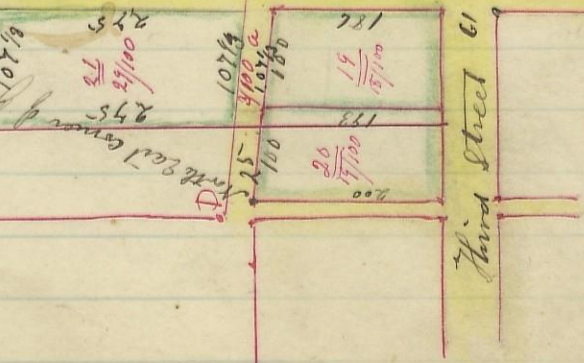 107 1/8
275
21
29/100
275
North East Corner of
D
107 1/8
9/100 a
107 1/2
100
25
100
186
19
18/100
193
20
19/100
200
Third Street 61